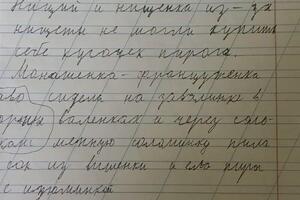 Нищий и нищенка из-за
нищеты не могли купить
себе кусочек пирога.
Монашенка-француженка
сидела на завалинке в
валенках и через соло-
менную соломинку пила
сок из вишенки и ела пирог
с изюминкой